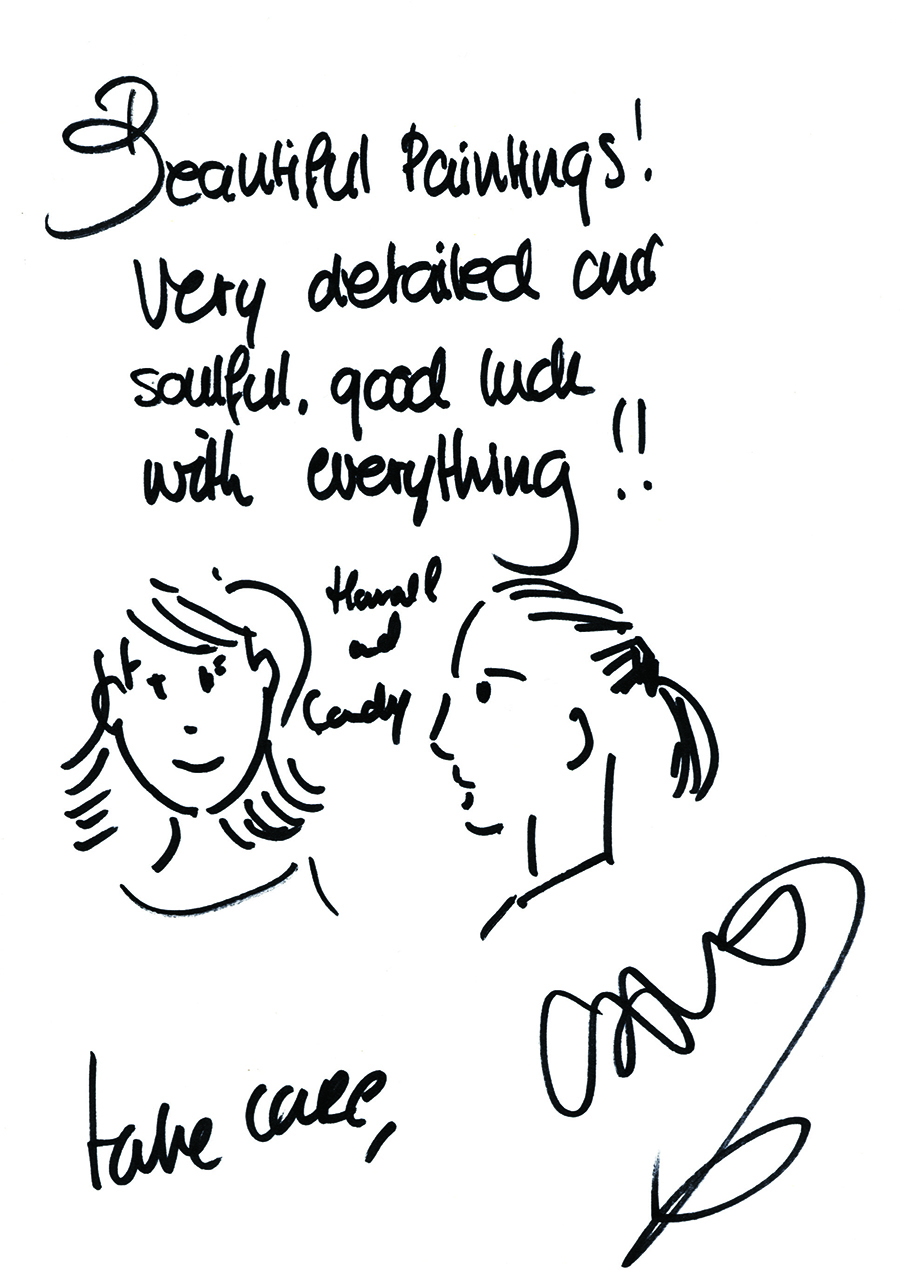 Beautiful Paintings!
Very detailed and
soulful. good luck
with everything !!
and
Candy
take care,